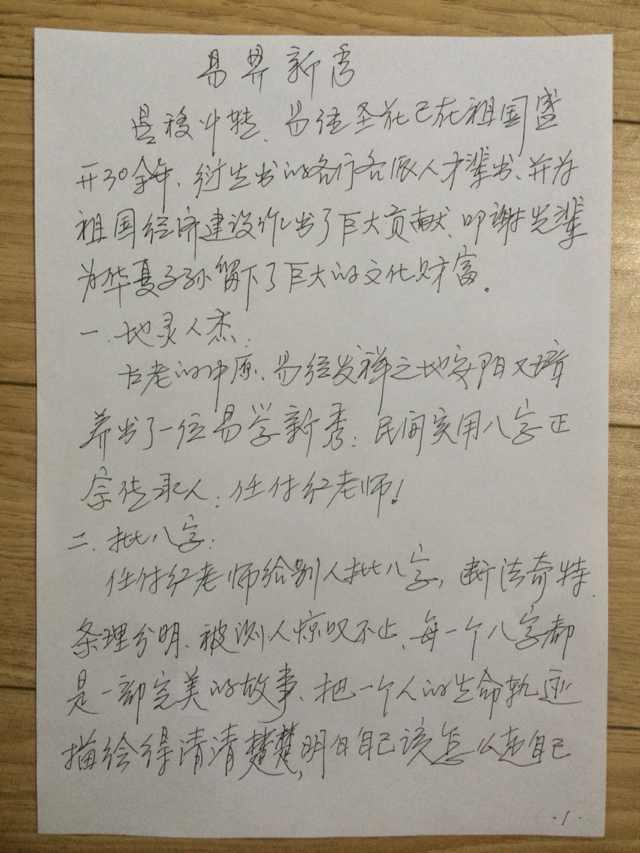 易界新秀
星移斗转、易经圣花已在祖国盛
开30余年、衍生出的各行各派人才辈出、并为
祖国经济建设作出了巨大贡献、叩谢先辈
为华夏子孙留下了巨大的文化财富。
一、地灵人杰:
古老的中原、易经发祥之地安阳又培
养出了一位易学新秀:民间实用八字正
宗传承人:任付红老师!
二、批八字:
任付红老师给别人批八字,断法奇特、
条理分明、被测人惊叹不止、每一个八字都
是一部完美的故事、把一个人的生命轨迹
描绘得清清楚楚,明白自己该怎么走自己
·1·